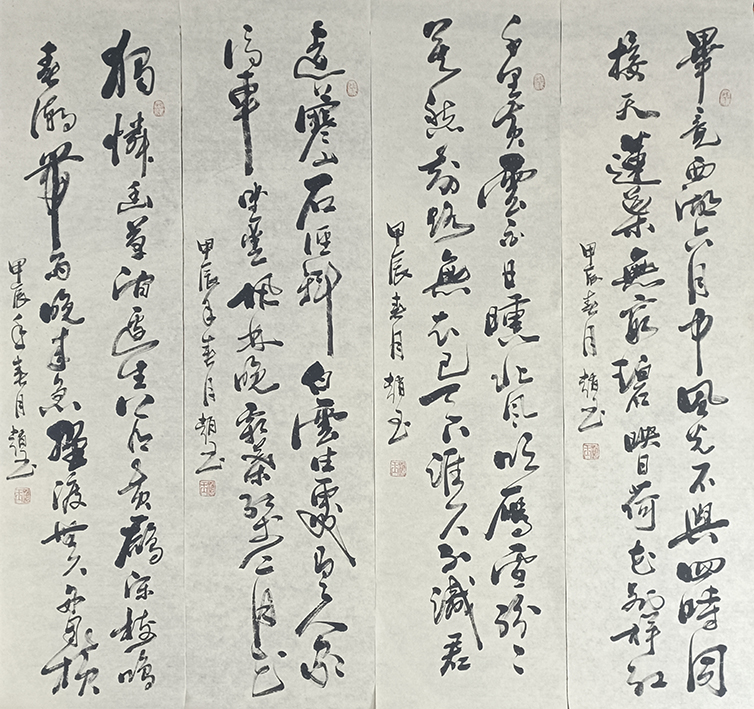 畢竟西湖六月中風光不與四時同
接天蓮葉無窮碧映日荷花別樣紅
甲辰春月趙玉
千里黃雲白日曛北風吹雁雪紛々
莫愁前路無知己天下誰人不識君
甲辰春月趙玉
遠上寒山石徑斜白雲生處有人家
停車坐愛楓林晚霜葉紅於二月花
甲辰年春月趙玉
獨憐幽草澗邊生上有黃鸝深樹鳴
春潮帶雨晚來急野渡無人舟自橫
甲辰年春月趙玉